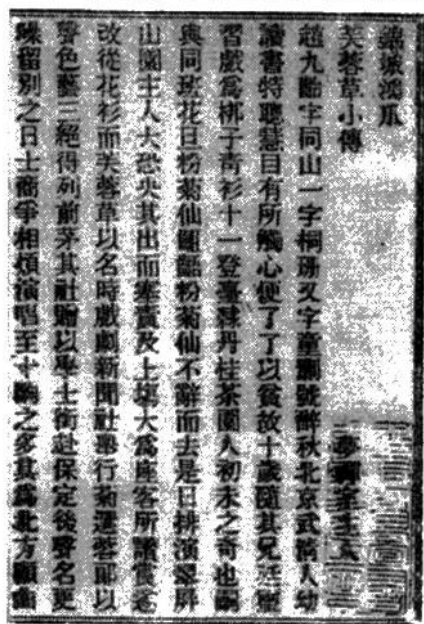 鴻爪
芙蓉草小傳
夢 室主人
趙九齡字同山一字桐珊又字童 號醉秋北京武淸人幼
讀書特聰慧目有所觸心便了了以貧故十歲隨其兄
習戲爲梆子靑衫十一登臺隸丹桂茶園人初未之奇也嗣
與同班花旦粉菊仙 齬粉菊仙不辭而去是日排演翠屏
山園主人大恐央其出而塞責及上場大爲座客所讚賞
改從花衫而芙蓉草以名時戲劇新聞社舉行菊選蓉郞以
聲色藝三絕得列前茅其社贈以學士銜赴保定後聲名更
躁留別之日士商爭相煩演唱至十 之多其爲北方顧曲